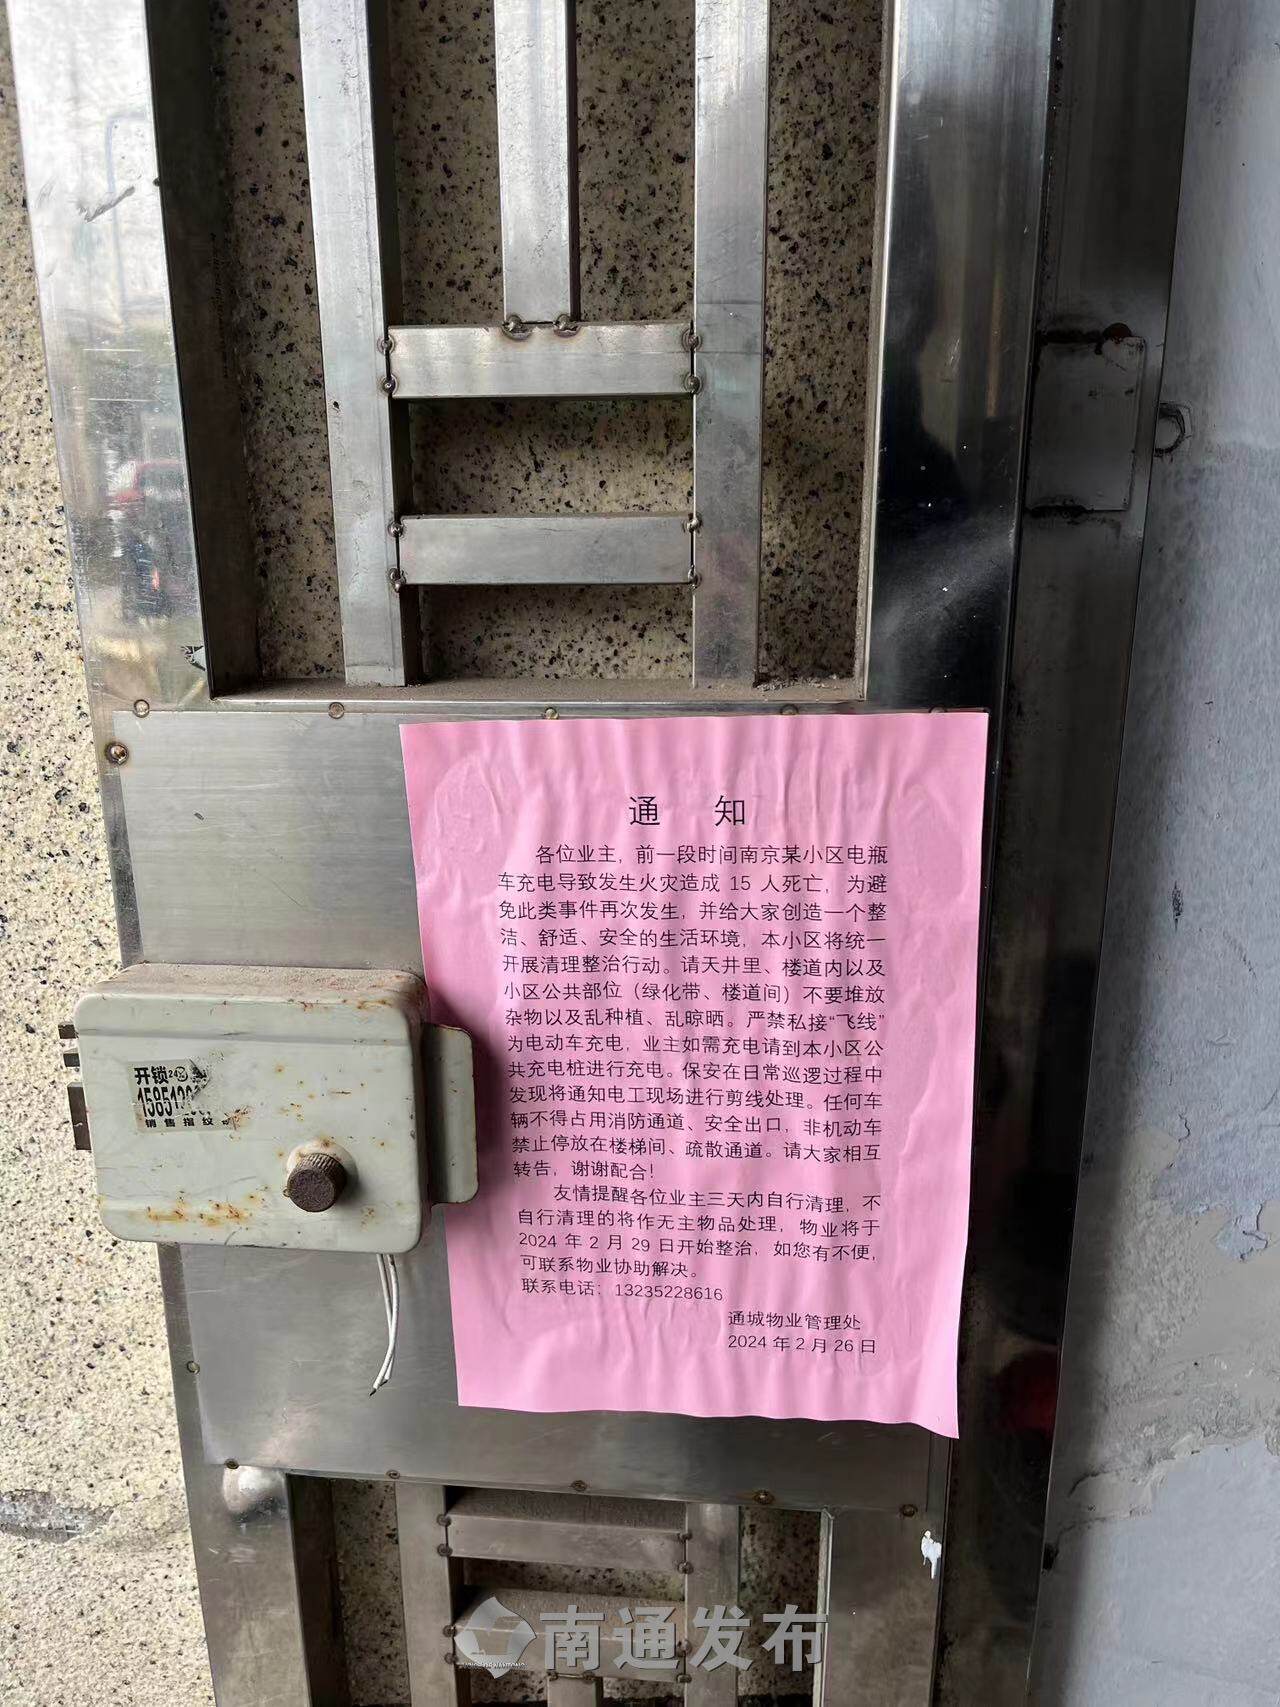 通 知
各位业主，前一段时间南京某小区电瓶
车充电导致发生火灾造成 15 人死亡，为避
免此类事件再次发生，并给大家创造一个整
洁、舒适、安全的生活环境，本小区将统一
开展清理整治行动。请天井里、楼道内以及
小区公共部位（绿化带、楼道间）不要堆放
杂物以及乱种植、乱晾晒。严禁私接“飞线”
为电动车充电，业主如需充电请到本小区公
共充电桩进行充电。保安在日常巡逻过程中
发现将通知电工现场进行剪线处理。任何车
辆不得占用消防通道、安全出口，非机动车
禁止停放在楼梯间、疏散通道。请大家相互
转告，谢谢配合！
友情提醒各位业主三天内自行清理，不
自行清理的将作无主物品处理，物业将于
2024 年 2 月 29 日开始整治，如您有不便，
可联系物业协助解决。
联系电话：13235228616
通城物业管理处
2024 年 2 月 26 日
开锁24
销售指纹
南通发布